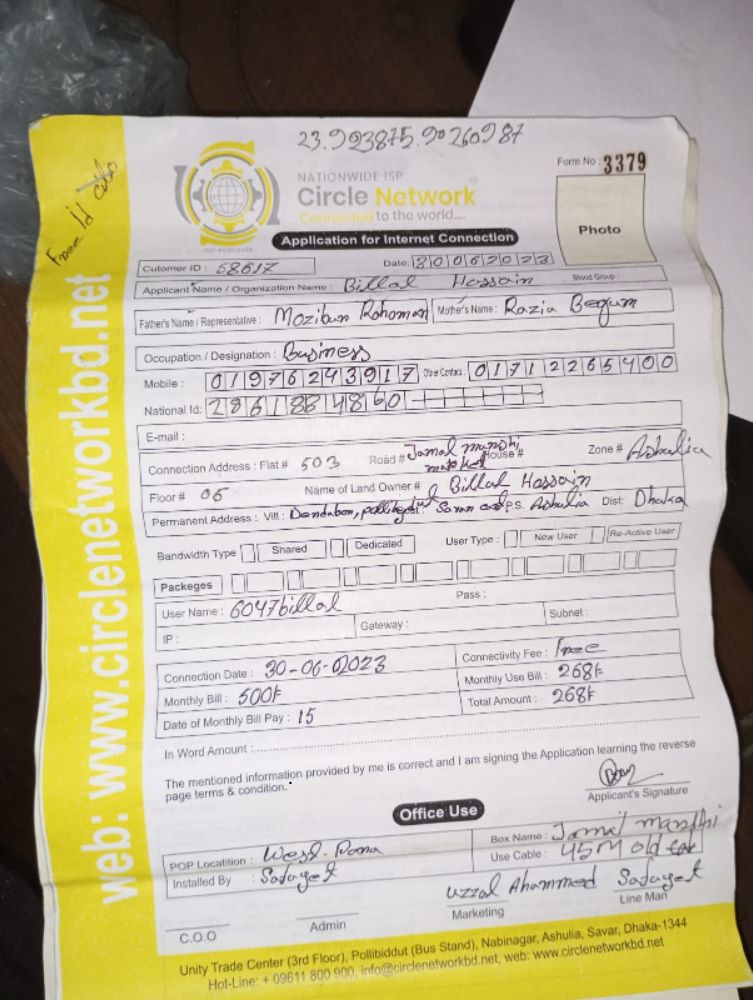 23.993875.90260987
Form No : 3379
NATIONWIDE ISP
Circle Network
Connected to the world....
Photo
Application for Internet Connection
Free Id
Cutomer ID : 58617
Date: 30062023
Applicant Name / Organization Name : Billal Hossain Blood Group :
Father's Name / Representative : Mozibun Rohoman Mother's Name : Razia Begum
Occupation / Designation : Business
Mobile : 01976243917 Other Contact : 01712265400
National Id: 2861884860
E-mail :
Connection Address : Flat # 503 Road # Jamal munshi market House # Zone # Ashulia
Floor # 06 Name of Land Owner # Billal Hossain
Permanent Address : Vill : Dendabor, P.S. Ashulia Dist: Dhaka
Bandwidth Type Shared Dedicated User Type : New User Re-Active User
Packeges
User Name : 6047billal Pass :
IP : Gateway : Subnet :
Connection Date : 30-06-2023 Connectivity Fee : Free
Monthly Bill : 500৳ Monthly Use Bill : 268৳
Date of Monthly Bill Pay : 15 Total Amount : 268৳
In Word Amount :
The mentioned information provided by me is correct and I am signing the Application learning the reverse
page terms & condition.
Applicant's Signature
Office Use
POP Locatition : West. Para Box Name : Jamal munshi
Installed By : Sadayet Use Cable : 45M old
Uzzal Ahammed Sadayet
C.O.O Admin Marketing Line Man
Unity Trade Center (3rd Floor), Pollibiddut (Bus Stand), Nabinagar, Ashulia, Savar, Dhaka-1344
Hot-Line: + 09611 800 900, info@circlenetworkbd.net, web: www.circlenetworkbd.net
web: www.circlenetworkbd.net